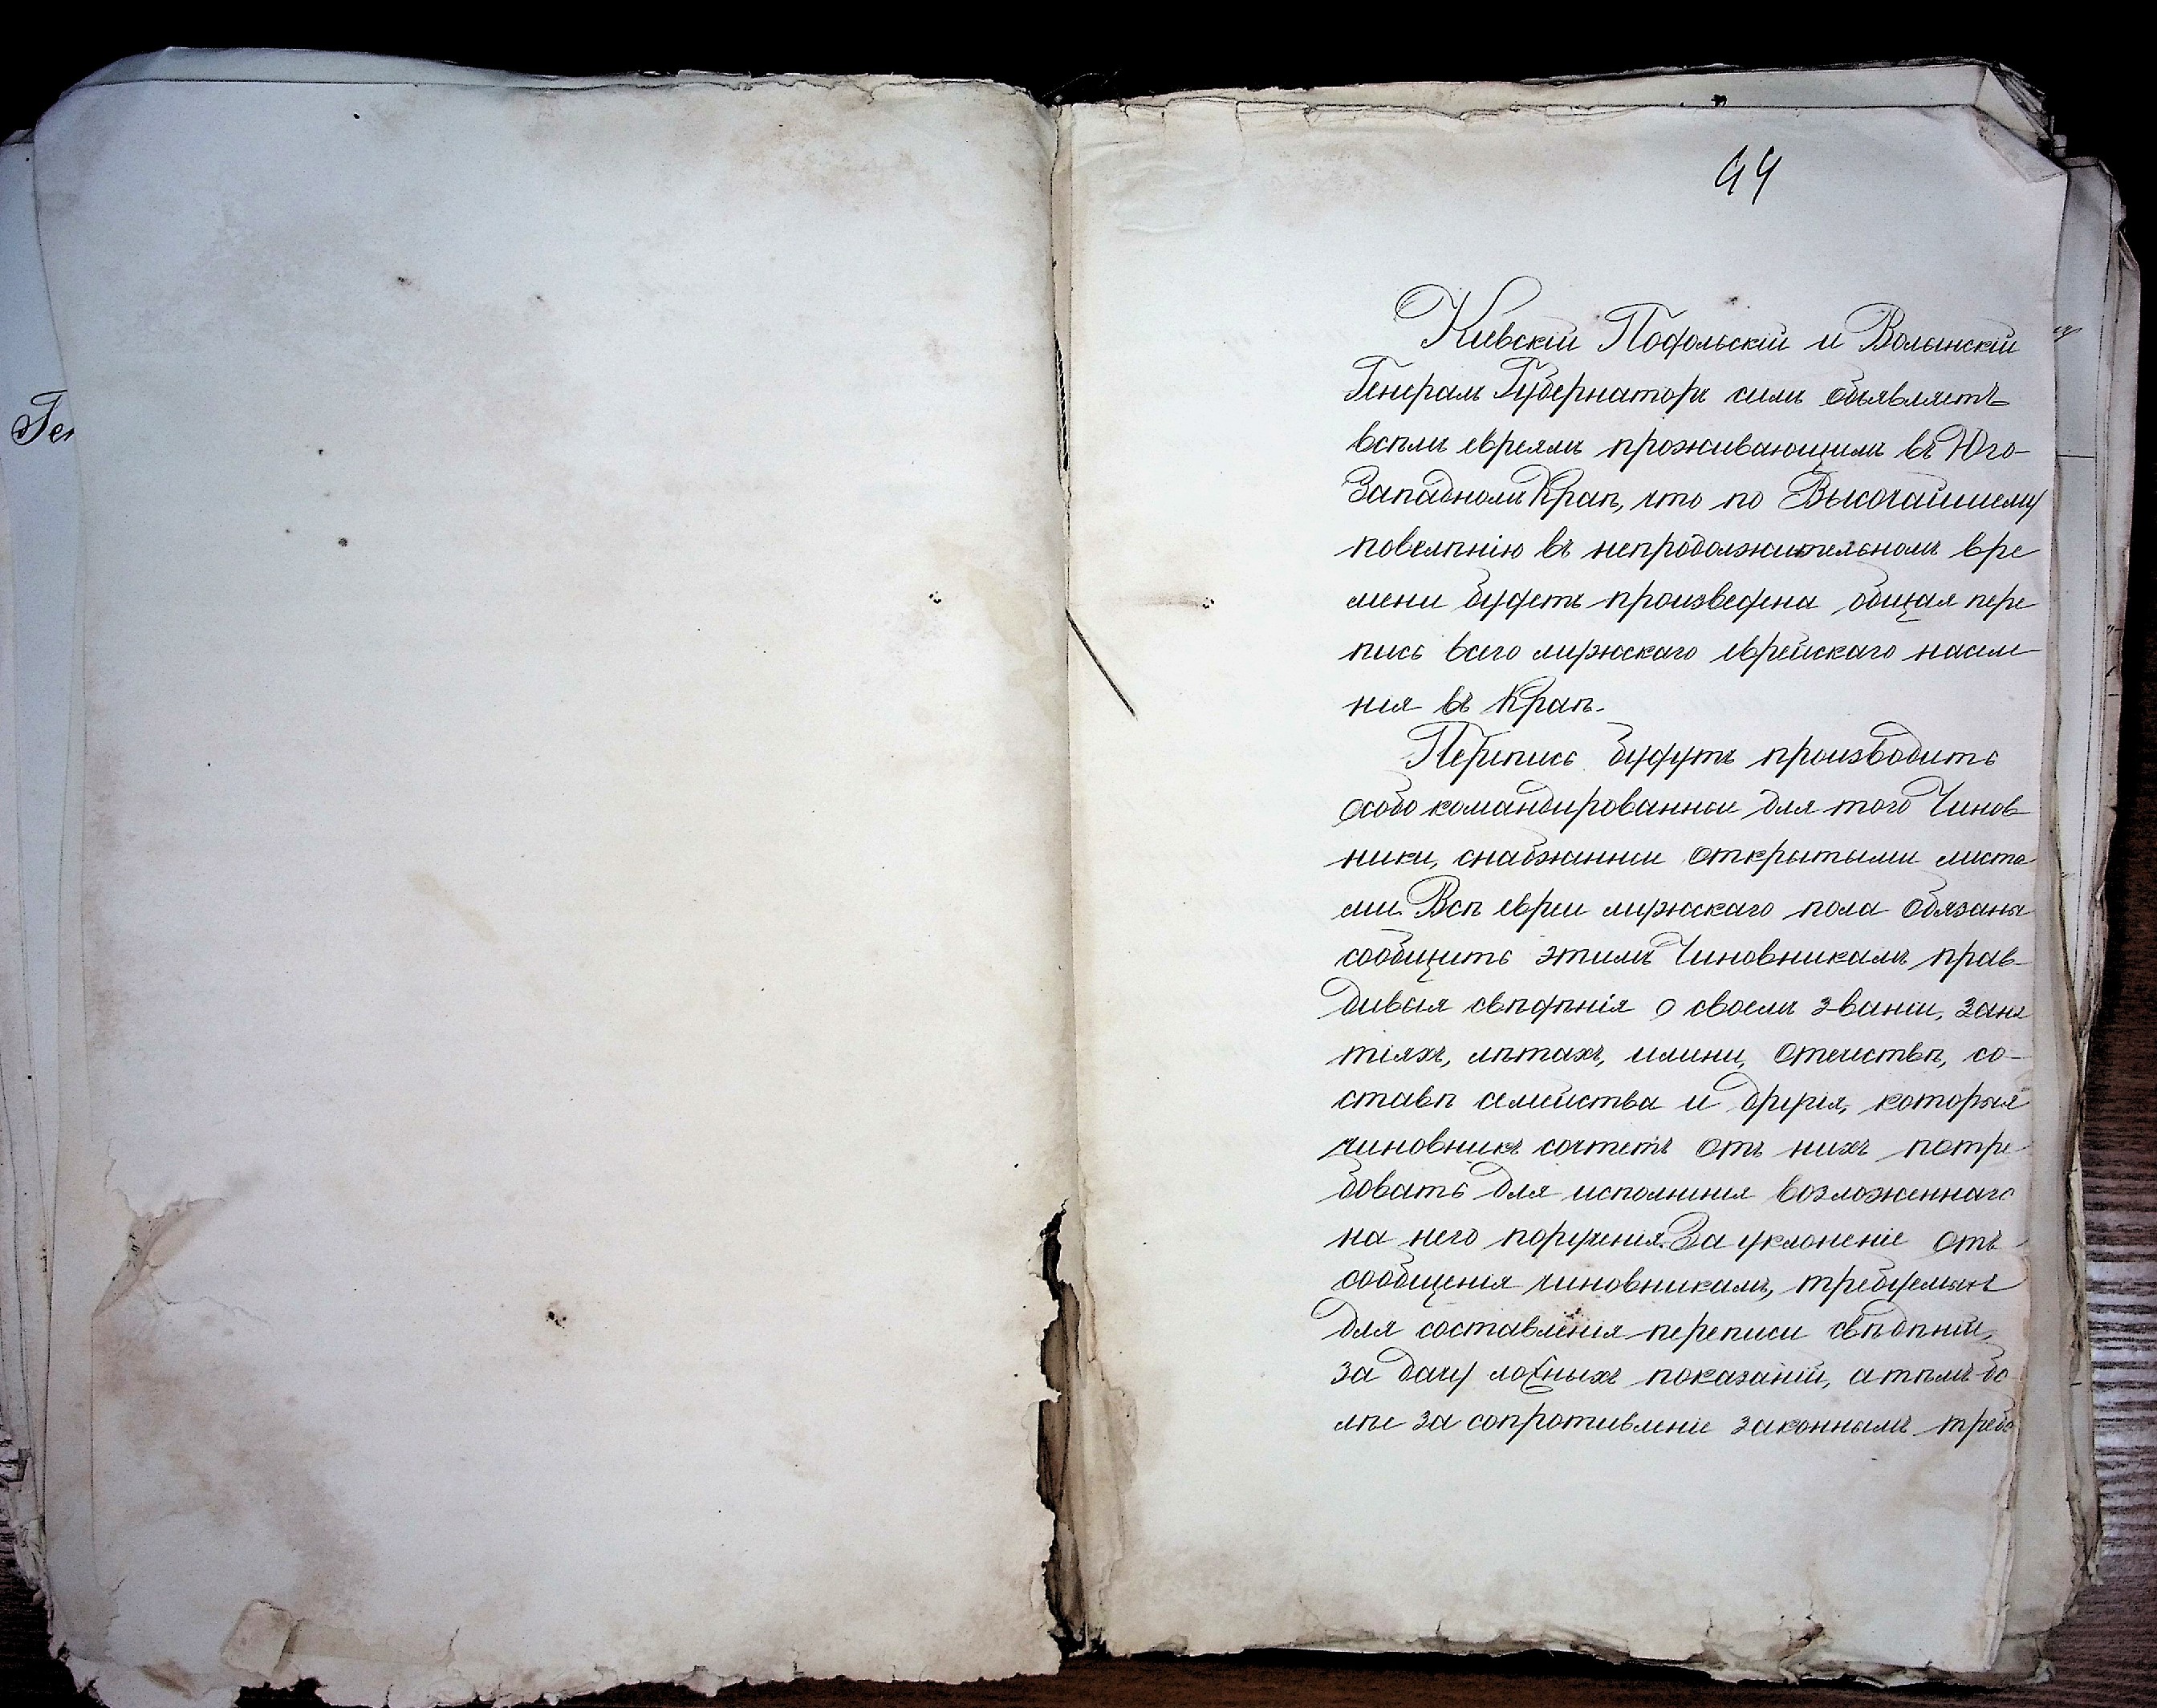 44
Ген
Кіевскій Подольскій и Волынскій
Генералъ Губернаторъ симъ объявляетъ
всѣмъ евреямъ проживающимъ въ Юго-
Западномъ Краѣ, что по Высочайшему
повелѣнію въ непродолжительномъ вре
мени будетъ произведена общая пере
пись всего мужскаго еврейскаго населе
нія въ Краѣ.
Перепись будутъ производить
особо командированные для того Чинов
ники, снабженные открытыми листа
ми. Всѣ евреи мужскаго пола обязаны
сообщить этимъ Чиновникамъ прав-
дивыя свѣдѣнія о своемъ званіи, заня
тіяхъ, лѣтахъ, имени, отчествѣ, со-
ставѣ семейства и другія, которыя
чиновникъ сочтетъ отъ нихъ потре
бовать для исполненія возложеннаго
на него порученія. За уклоненіе отъ
сообщенія чиновникамъ, требуемыхъ
для составленія переписи свѣдѣній,
за дачу ложныхъ показаній, а тѣмъ бо
лѣе за сопротивленіе законнымъ требо